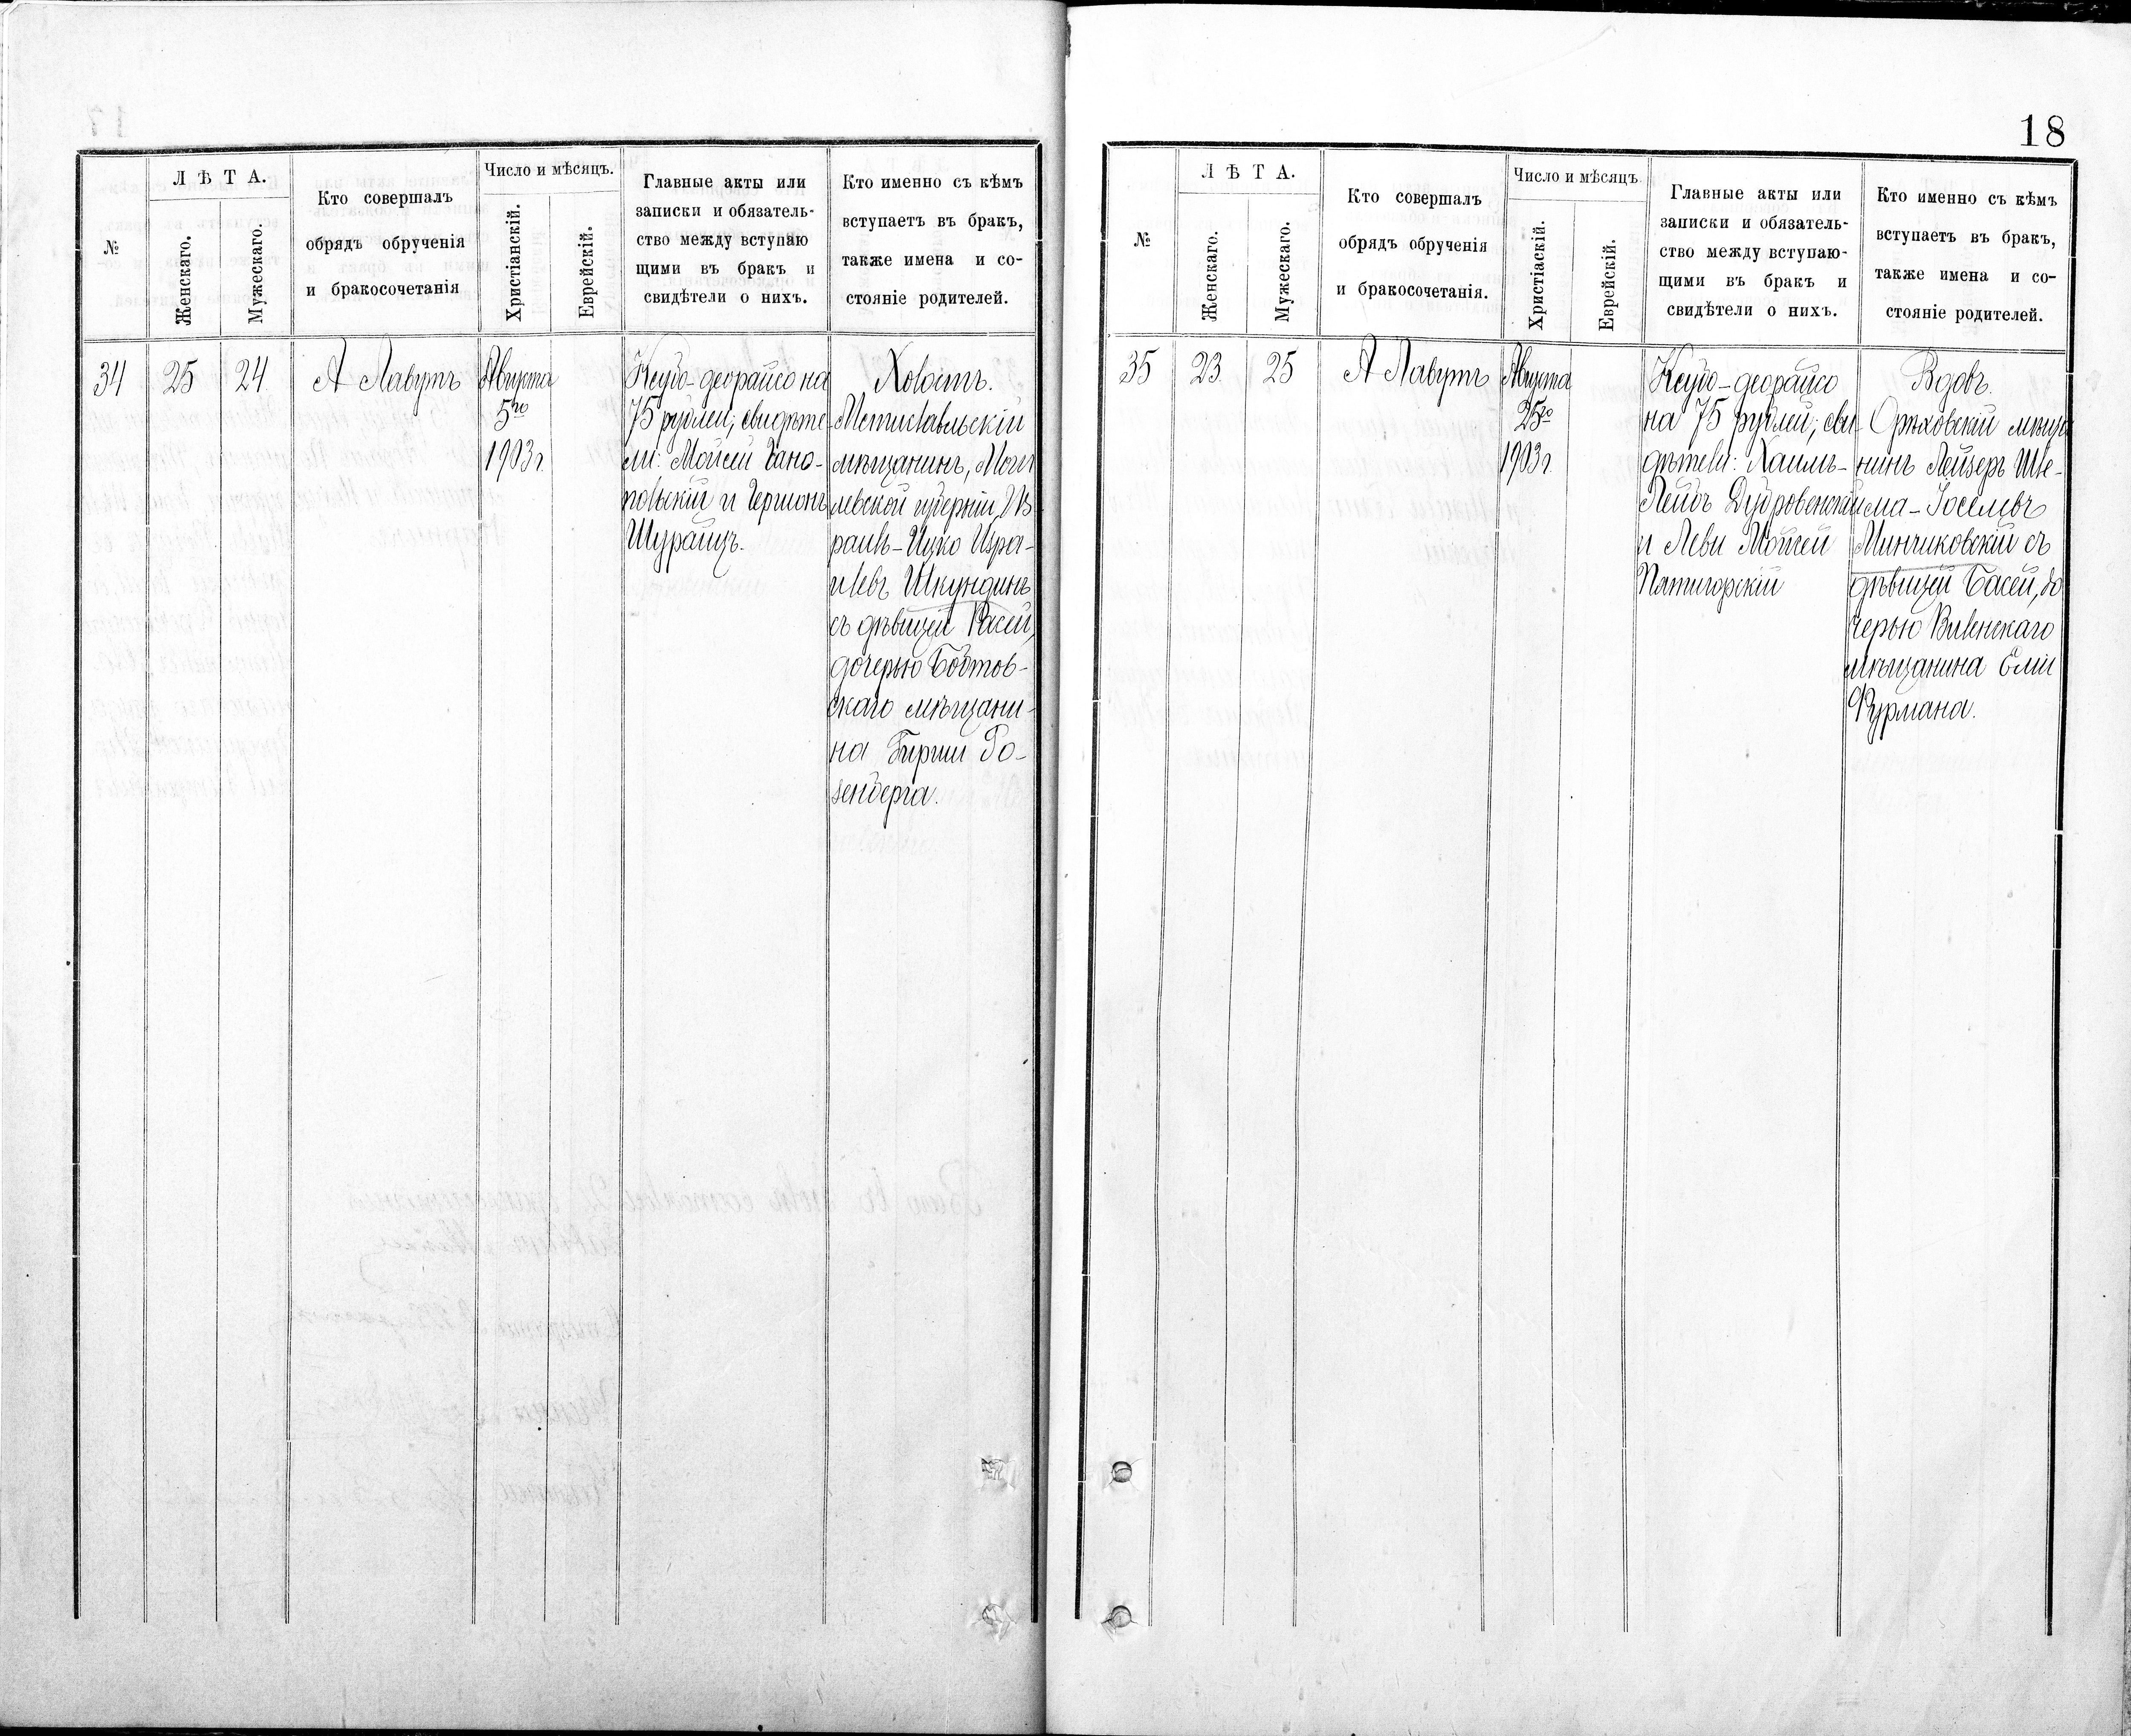 №
Л Ѣ Т А.
Женскаго.
Мужескаго.
Кто совершалъ
обрядъ обрученія
и бракосочетанія
Число и мѣсяцъ.
Христіанскій.
Еврейскій.
Главные акты или
записки и обязатель-
ство между вступаю
щими въ бракъ и
свидѣтели о нихъ.
Кто именно съ кѣмъ
вступаетъ въ бракъ,
также имена и со-
стояніе родителей.
34
25
24
А Лавутъ
Августа
5го
1903 г.
Ксубо-деорайсо на
75 рублей; свидѣте
ли: Мойсей
и
Шурайцъ.
Холостъ.
Мстиславльскій
мѣщанинъ, Моги
левской губерніи, Из
раиль-Ицко Изра-
илевъ Шкундинъ
съ дѣвицей Расей,
дочерью
скаго мѣщани-
на Гирши Ро-
зенберга.
18
№
Л Ѣ Т А.
Женскаго.
Мужескаго.
Кто совершалъ
обрядъ обрученія
и бракосочетанія.
Число и мѣсяцъ.
Христіаскій.
Еврейскій.
Главные акты или
записки и обязатель-
ство между вступаю-
щими въ бракъ и
свидѣтели о нихъ.
Кто именно съ кѣмъ
вступаетъ въ бракъ,
также имена и со-
стояніе родителей.
35
23
25
А Лавутъ
Августа
25го
1903 г.
Ксубо-деорайсо
на 75 рублей; сви-
дѣтели: Хаимъ-
Лейбъ Дубровенскій
и Леви Мойсей
Пятигорскій
Вдовъ.
Орѣховскій мѣща
нинъ Лейзеръ Шле-
ма-Іоселевъ
Минчиковскій съ
дѣвицей Басей, до
черью Виленскаго
мѣщанина Еліи
Фурмана.